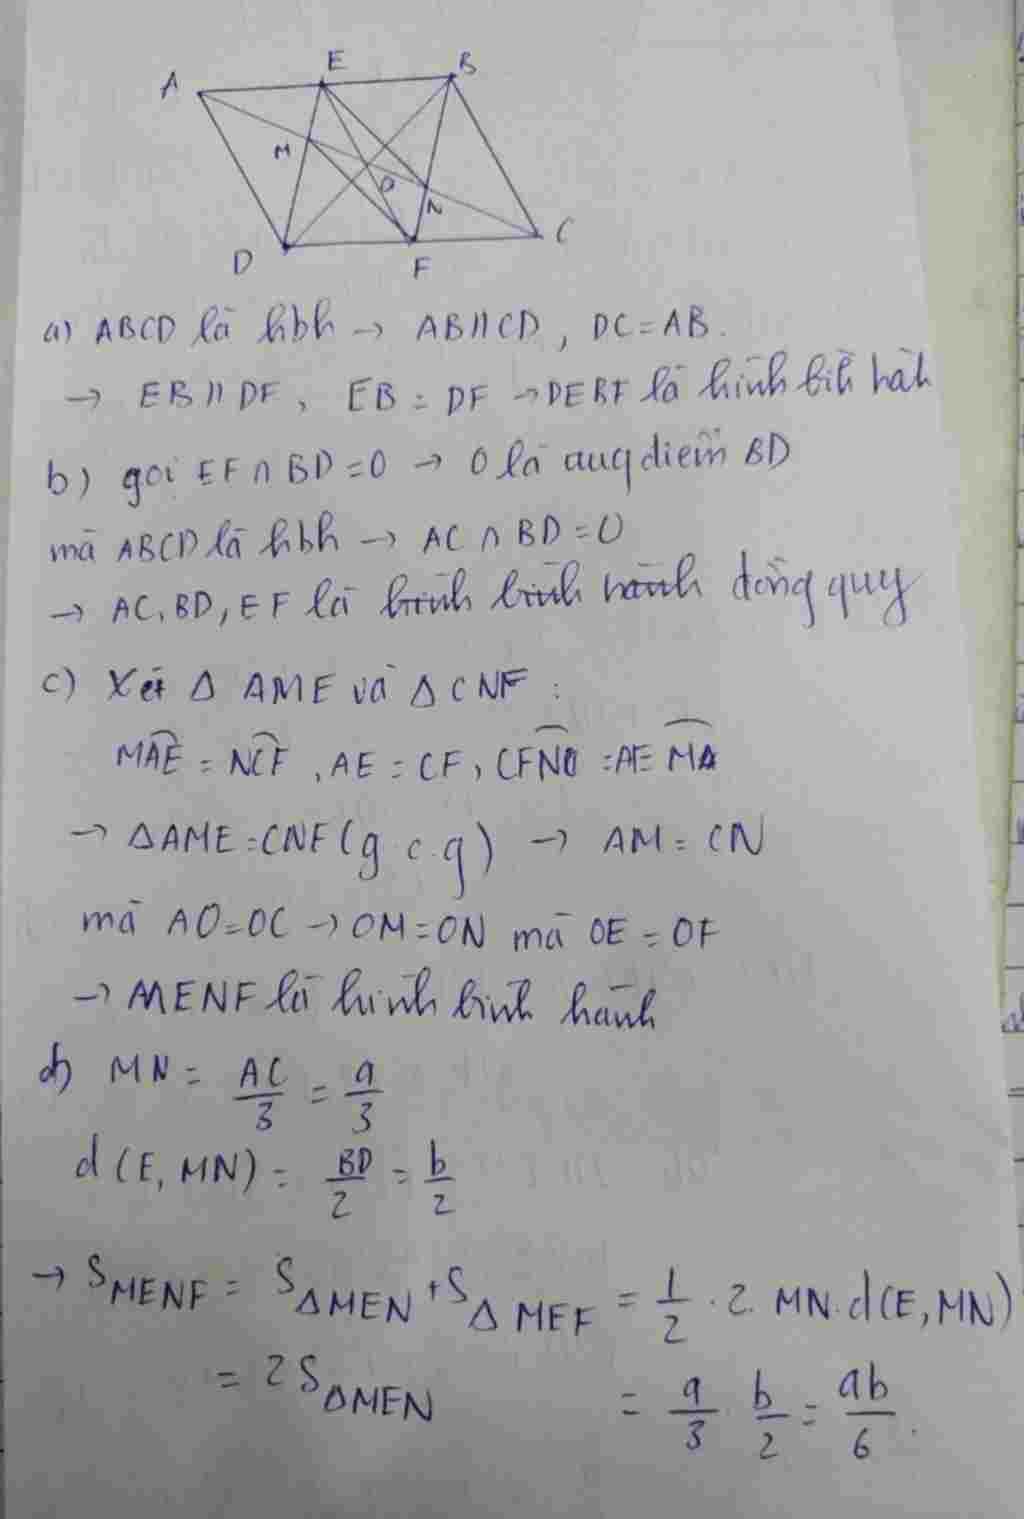 A E B
M O N
D F C
a) ABCD là hbh → AB // CD , DC = AB.
→ EB // DF , EB = DF → DEBF là hình bìh hàh
b) gọi EF ∩ BD = O → O là điểm BD
mà ABCD là hbh → AC ∩ BD = O
→ AC, BD, EF là hình bình hành đồng quy
c) Xét Δ AME và Δ CNF :
MAE = NCF , AE = CF ,
→ ΔAME = CNF (g.c.g) → AM = CN
mà AO = OC → OM = ON mà OE = OF
→ MENF là hình bình hành
d) MN = AC/3 = a/3
d(E, MN) = BD/2 = b/2
→ S_MENF = S_ΔMEN + S_ΔMEF = 1/2 . 2. MN. d(E, MN)
= 2S_ΔMEN = a/3 . b/2 = ab/6 .